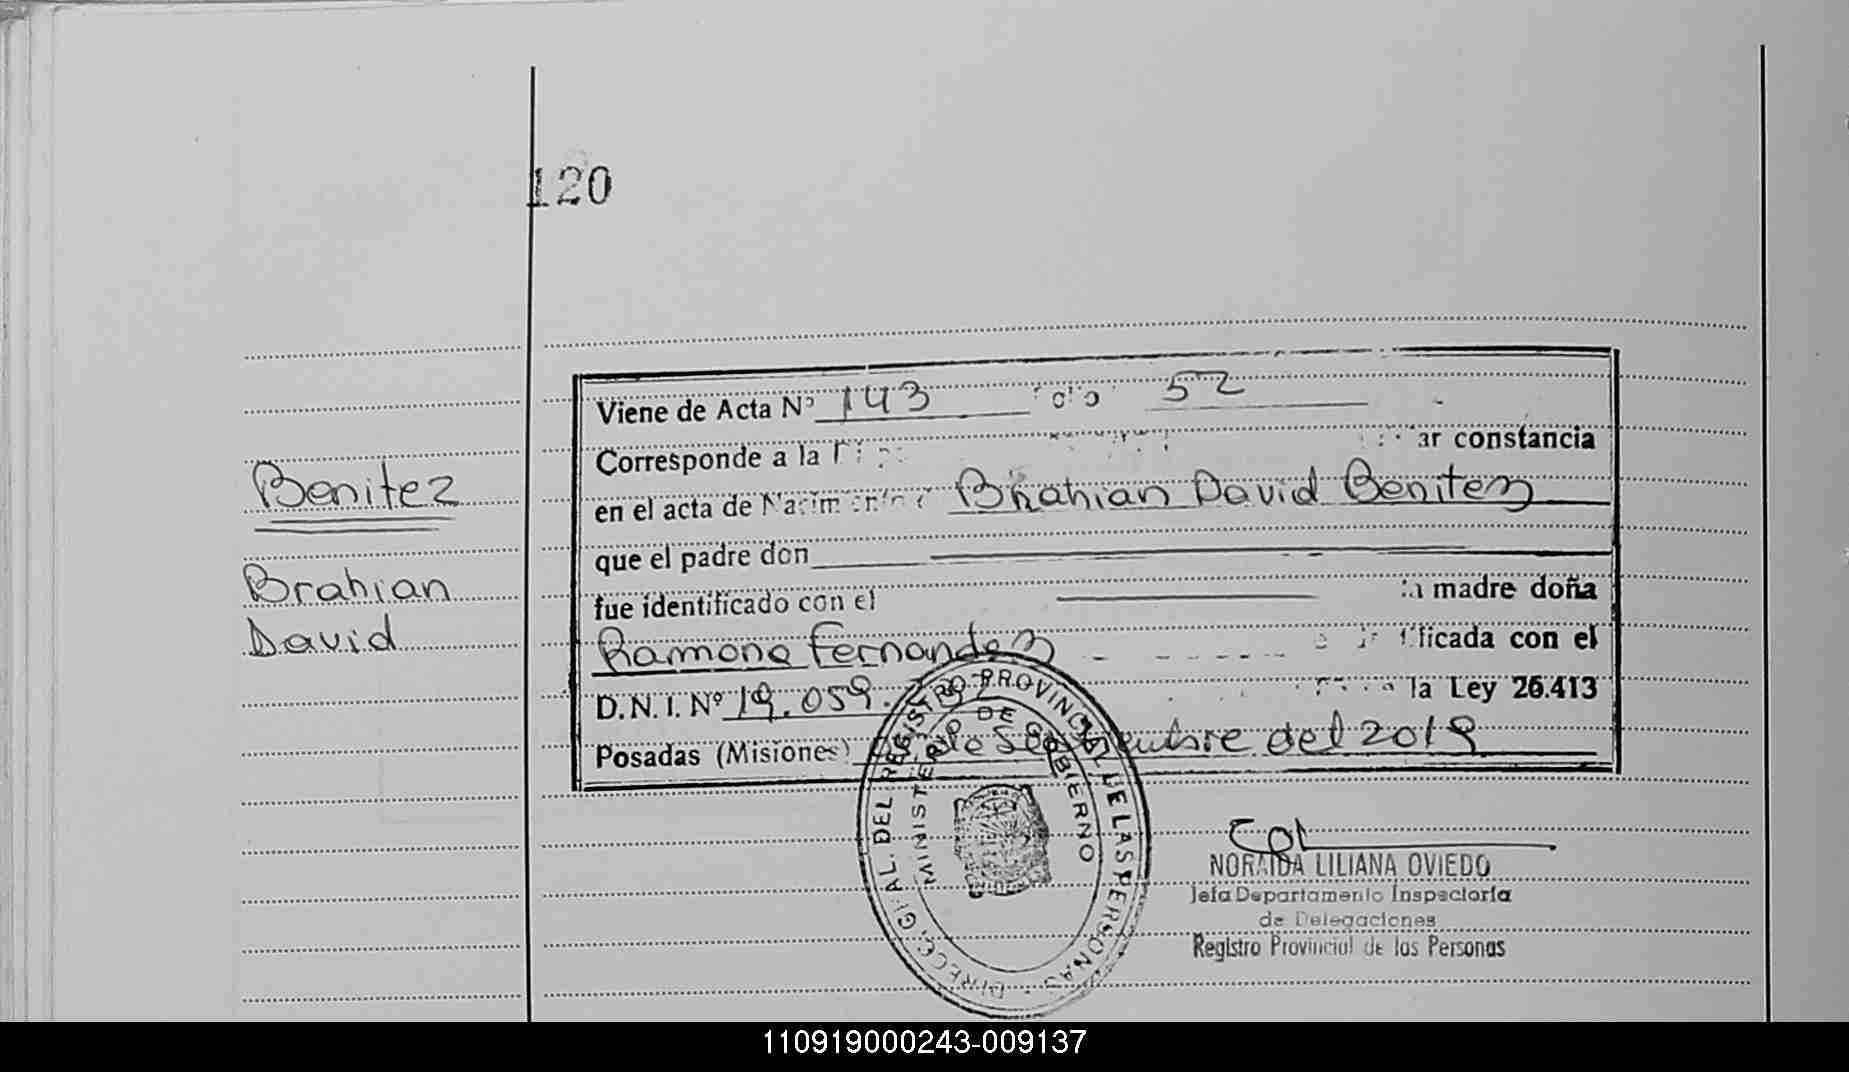 120
Benitez
Brahian
David
Viene de Acta Nº 143 52
Corresponde a la ar constancia
en el acta de Nacimiento Brahian David Benitez
que el padre don
fue identificado con el la madre doña
Ramona Fernandez ficada con el
D.N.I. Nº 19.059. la Ley 26.413
Posadas (Misiones) de Septiembre del 2019
DIRECC. GRAL. DEL REGISTRO PROVINCIAL DE LAS PERSONAS
MINISTERIO DE GOBIERNO
NORAIDA LILIANA OVIEDO
Jefa Departamento Inspectoría
de Delegaciones
Registro Provincial de las Personas
110919000243-009137